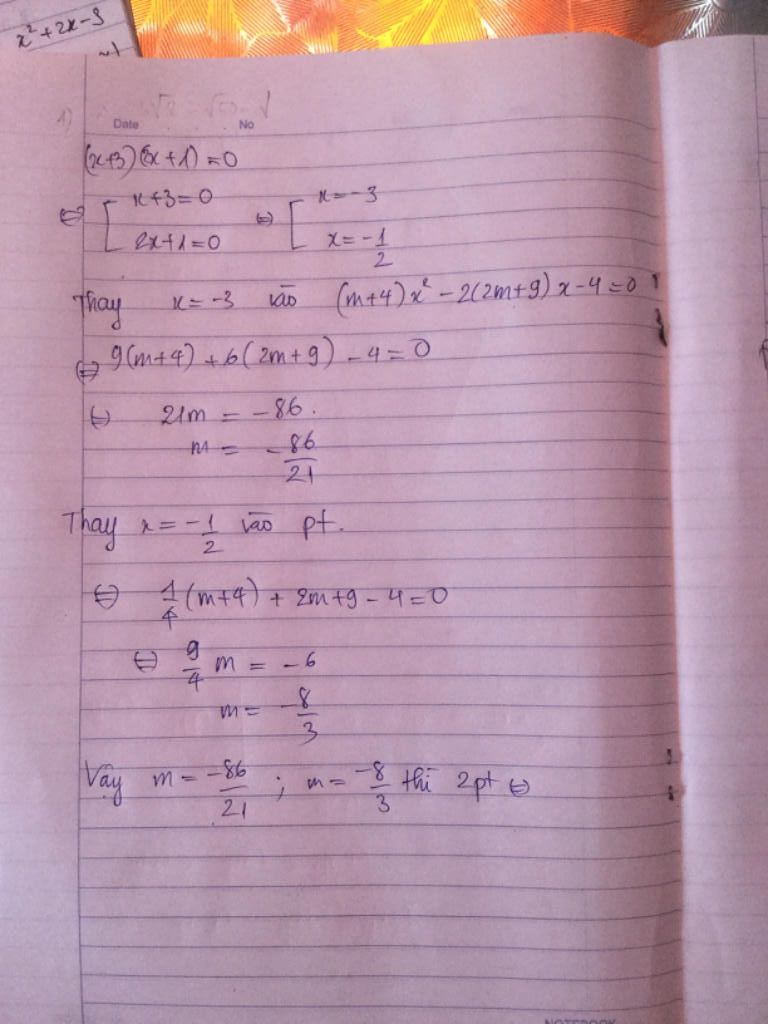 x² + 2x - 3
1)
Date No
(x+3)(2x+1)=0
⇔ [ x+3=0 ⇔ [ x=-3
2x+1=0 x=-1/2
Thay x=-3 vào (m+4)x² - 2(2m+9)x-4=0
⇔ 9(m+4) + 6(2m+9) - 4 = 0
⇔ 21m = -86.
m = -86/21
Thay x = -1/2 vào pt.
⇔ 1/4(m+4) + 2m+9 - 4 = 0
⇔ 9/4 m = -6
m = -8/3
Vậy m = -86/21 ; m = -8/3 thì 2pt ⇔
NOTEBOOK